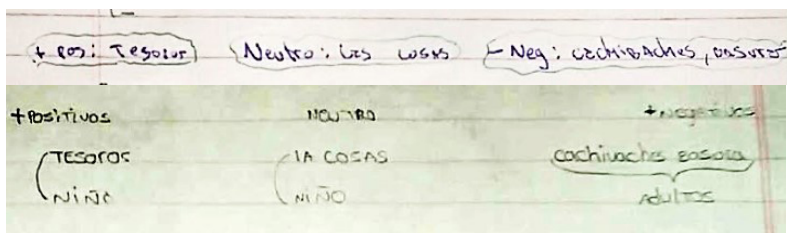 + Pos: Tesoros Neutro: Las cosas - Neg: cachibaches, basuras
+Positivos Neutro +Negativos
Tesoros la cosas cachivaches basora
niño niño adultos